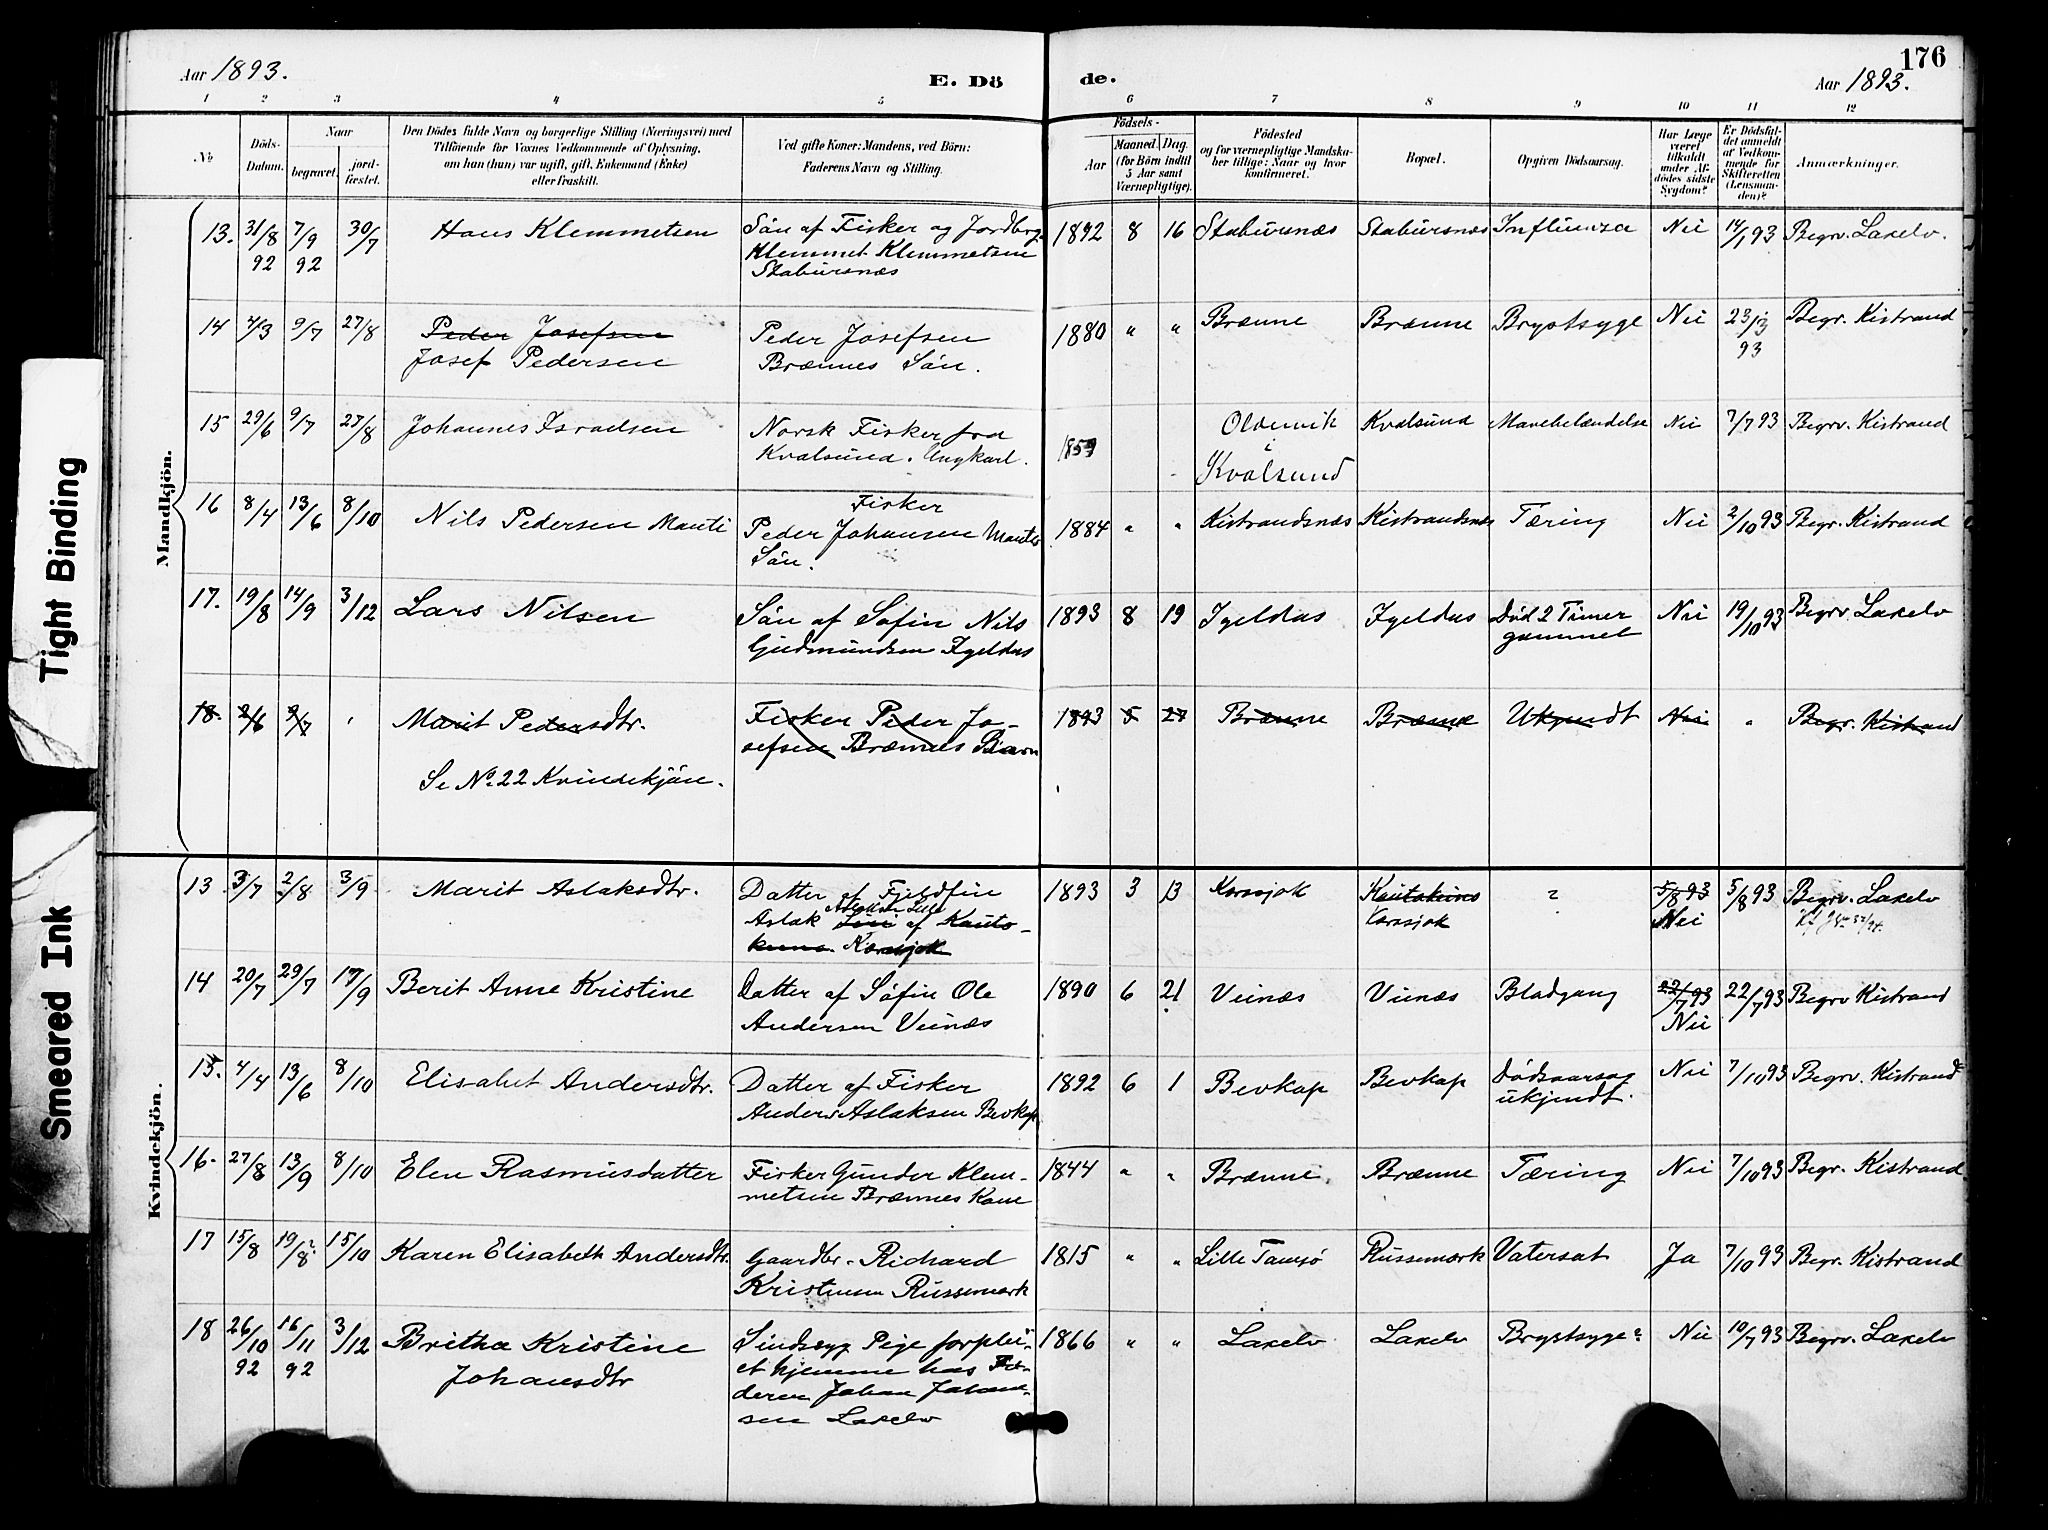 176
Aar 1893.
E. Dö
de.
Aar 1893.
1 2 3 4 5 6 7 8 9 10 11 12
№
Döds-
Datum.
Naar
begravet.
jord-
fæstet.
Den Dödes fulde Navn og borgerlige Stilling (Næringsvei) med
Tilföiende for Voxnes Vedkommende af Oplysning,
om han (hun) var ugift, gift, Enkemand (Enke)
eller fraskilt.
Ved gifte Koner: Mandens, ved Börn:
Faderens Navn og Stilling.
Födsels-
Aar
Maaned. Dag.
(for Börn indtil
5 Aar samt
Værnepligtige).
Födested
og for værnepligtige Mandska-
ber tillige: Naar og hvor
konfirmeret.
Bopæl.
Opgiven Dödsaarsag.
Har Læge
været
tilkaldt
under Af-
dödes sidste
Sygdom?
Er Dödsfal-
det anmeldt
af Vedkom-
mende for
Skifteretten
(Lensman-
den)?
Anmærkninger.
Mandkjön.
13. 31/8 92 7/9 92 30/7 Hans Klemmetsen
Sön af Fisker og Jordbrg.
Klemmet Klemmetsen
Stabursnæs
1892 8 16 Stabursnæs Stabursnæs Influenza Nei 14/1 93 Begrv. Laxelv.
14 4/3 9/7 27/8 Peder Josefsen
Josef Pedersen
Peder Josefsen
Brænnes Sön.
1880 " " Brænne Brænne Brystsyge Nei 23/3 93 Begr. Kistrand
15 29/6 9/7 27/8 Johannes Israelsen
Norsk Fisker fra
Kvalsund. Ungkarl.
1859 Oldervik
i
Kvalsund
Kvalsund Mavebetændelse Nei 7/7 93 Begrv. Kistrand
16 8/4 13/6 8/10 Nils Pedersen Manti
Fisker
Peder Johansen Mantis
Sön.
1884 " " Kistrandsnæs Kistrandsnæs Tæring Nei 2/10 93 Begr. Kistrand
17. 19/8 14/9 3/12 Lars Nilsen
Sön af Söfin Nils
Gudmundsen Igeldas
1893 8 19 Igeldas Igeldas död 2 Timer
gammel
Nei 19/10 93 Begrv Laxelv
18. 2/6 9/7 Marit Pedersdtr.
Se No 22 Kvindekjön.
Fisker Peder Jo-
sefsen Brænnes Barn
1893 5 27 Brænne Brænne Ukjendt Nei " Begr. Kistrand
Kvindekjön.
13 3/7 2/8 3/9 Marit Aslaksdtr.
Datter af Fjeldfin
Aslak af Kauto-
keino. Karasjok
1893 3 13 Karasjok Kautokeino
Karasjok
? 5/8 93
Nei
5/8 93 Begrv. Laxelv
14 20/7 29/7 17/9 Berit Anne Kristine
Datter af Söfin Ole
Andersen Veinæs
1890 6 21 Veinæs Veinæs Blodgang 22/7 93
Nei
22/7 93 Begrv Kistrand
15. 4/4 13/6 8/10 Elisabet Andersdtr.
Datter af Fisker
Anders Aslaksen Bevkop
1892 6 1 Bevkop Bevkop Dödsaarsag
ukjendt.
Nei 7/10 93 Begrv. Kistrand
16. 27/8 13/9 8/10 Elen Rasmusdatter
Fisker Gunder Klem-
metsen Brænnes Kone
1844 " " Brænne Brænne Tæring Nei 7/10 93 Begr. Kistrand
17 15/8 19/8? 15/10 Karen Elisabeth Andersdtr.
Gaardbr. Richard
Kristensen Russemark
1815 " " Lille Tamsö Russemark Vatersot Ja 7/10 93 Begr. Kistrand
18 26/10 92 16/11 92 3/12 Britha Kristine
Johansdtr
Sindssyg Pige forplei-
et hjemme hos Fa-
deren Johan Johan-
sen Laxelv
1866 " " Laxelv Laxelv Brystsyge? Nei 19/7 93 Begrv. Laxelv
Tight Binding
Smeared Ink